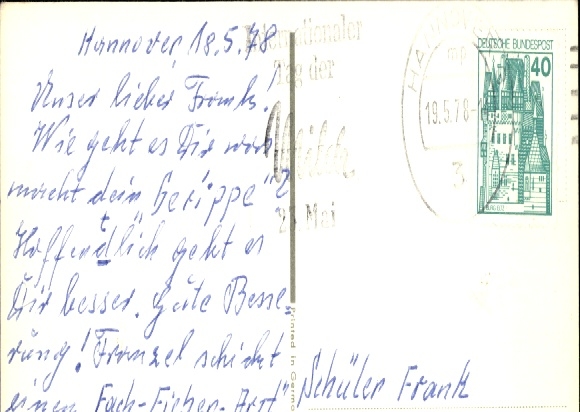 Hannover, 18.5.78
Unser lieber Frank!
Wie geht es Dir was
macht dein "Gerippe"?
Hoffentlich geht es
Dir besser. Gute Besse-
rung! Franzel schickt
einen "Fach-Fieber-Arzt"
Internationaler
Tag der
Milch
23. Mai
19.5.78-1
mp
3
DEUTSCHE BUNDESPOST
40
Printed in Germ
Schüler Frank